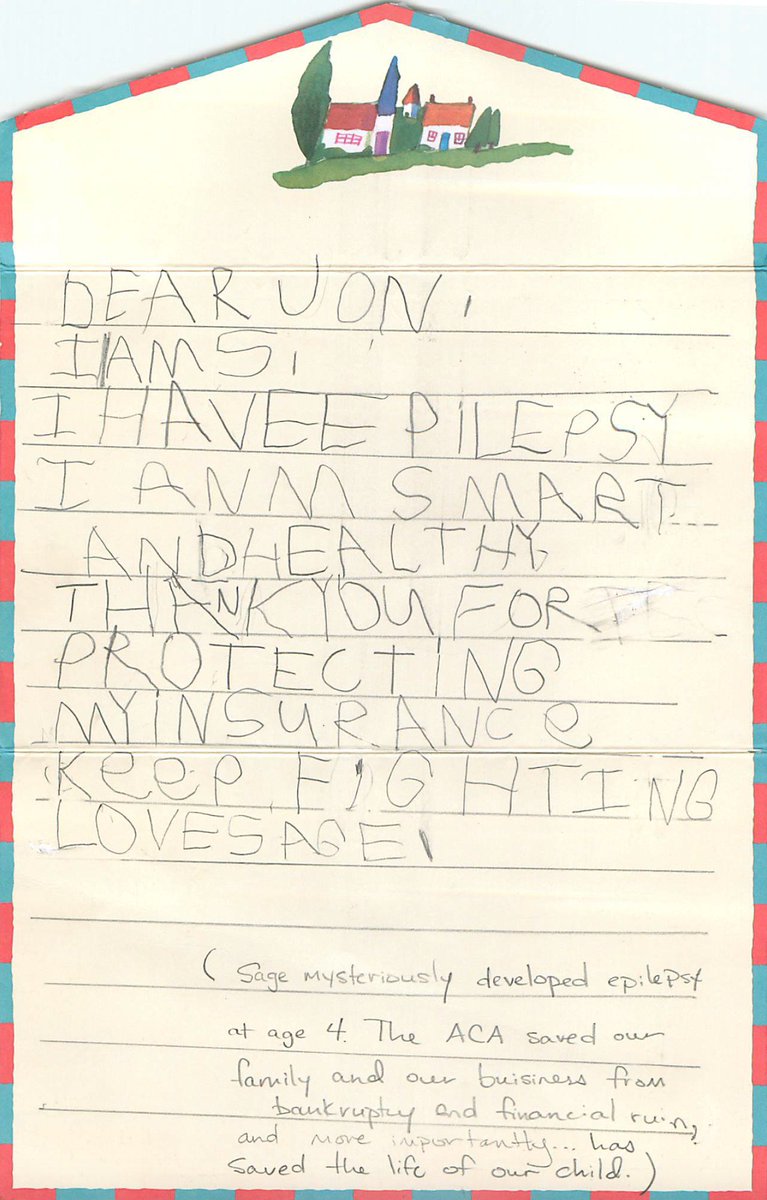 DEAR JON,
I AM 5,
I HAVE EPILEPSY
I ANM SMART
AND HEALTHY
THANK YOU FOR
PROTECTING
MY INSURANCE
KeeP FIGHTING
LOVE SAGE,
(Sage mysteriously developed epilepsy
at age 4. The ACA saved our
family and our buisiness from
bankruptcy and financial ruin,
and more importantly... has
saved the life of our child.)